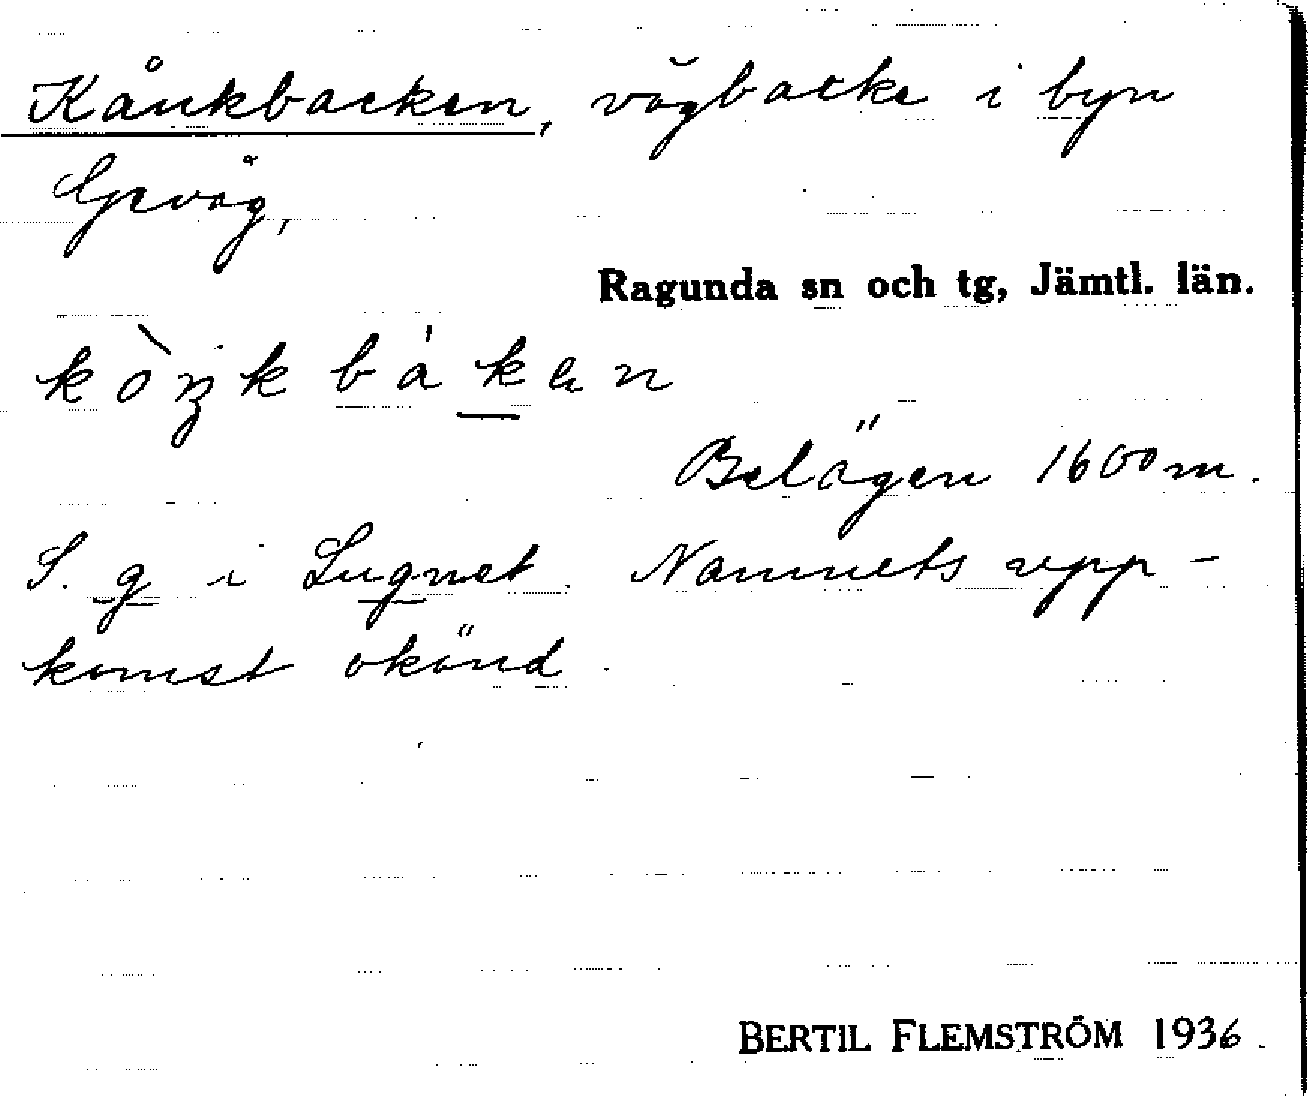 Kånkbacken, vägbacke i byn
Gevåg,
Ragunda sn och tg, Jämtl. län.
kòŋkbákan
Belägen 1600 m.
S. g i Lugnet. Namnets upp-
komst okänd.
BERTIL FLEMSTRÖM 1936.